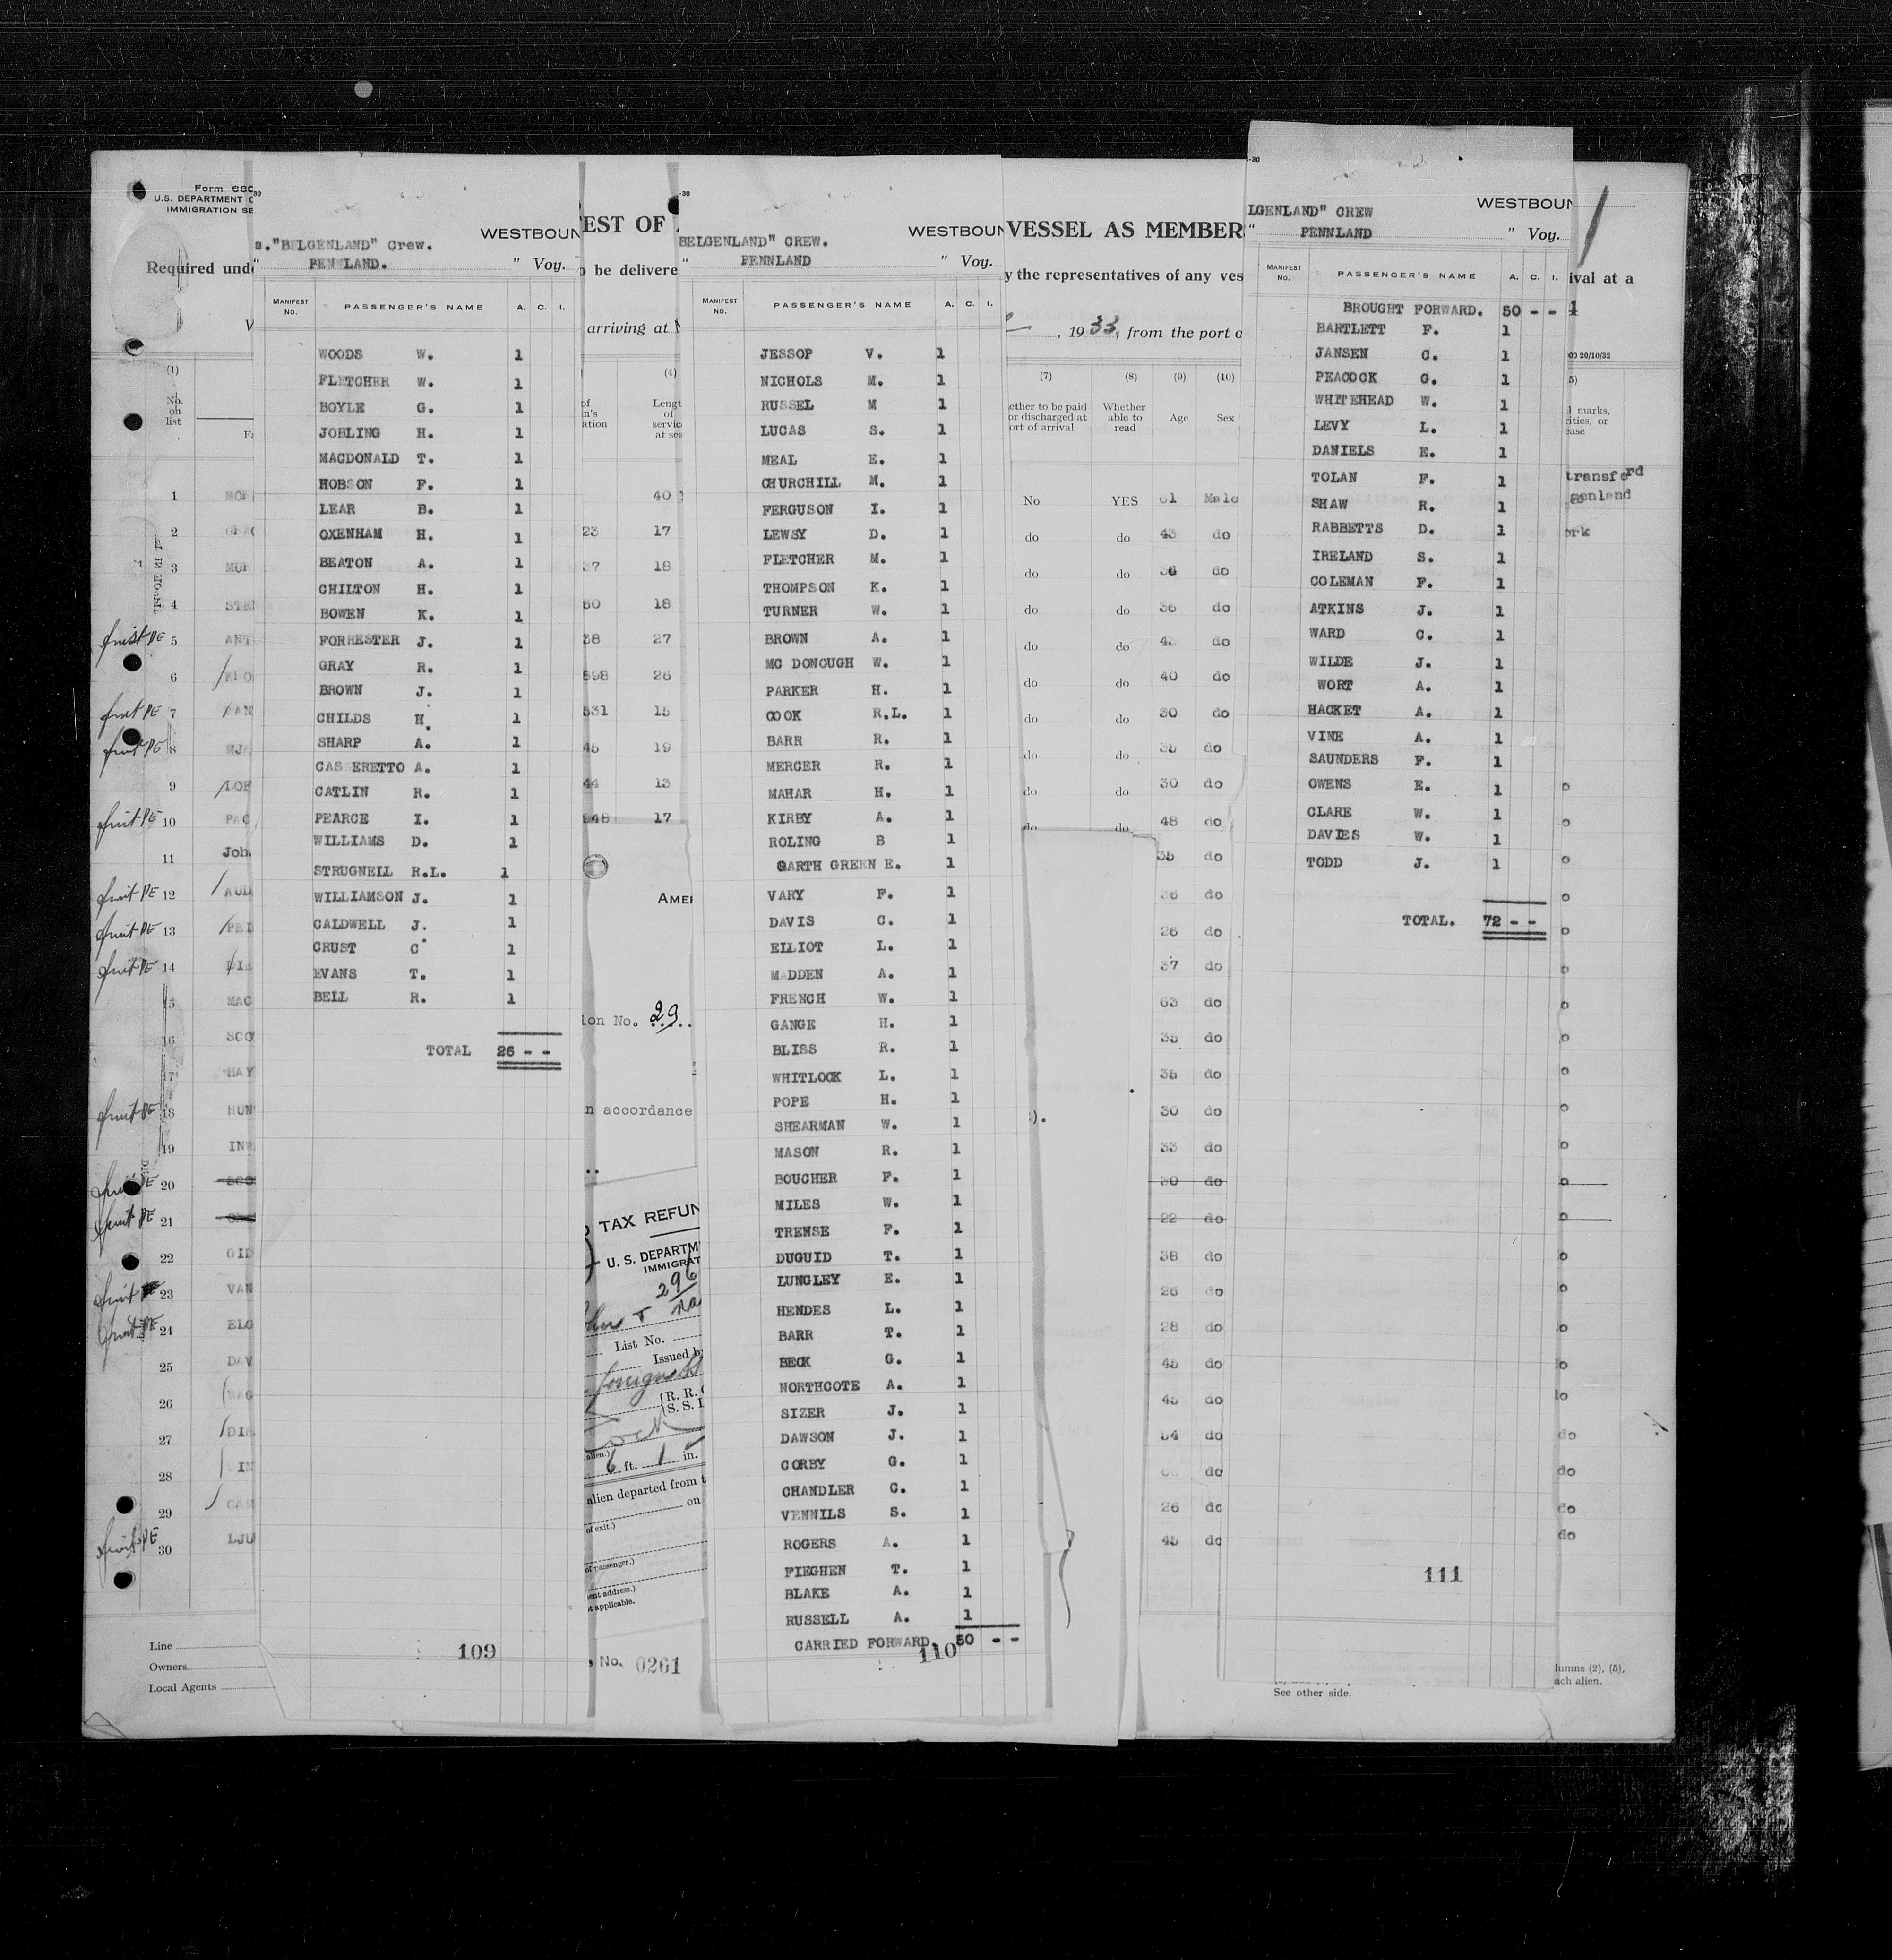 Form 680
U.S. DEPARTMENT O
IMMIGRATION SE
Required unde
(1)
No.
on
list
1 MOR
2
3
4 STE
5 ANT
6
7
8
9
10 PAC
11 Joh
12
13
14
15 MAC
16 SCO
17 HAY
18 HUN
19 IN
20
21
22 GID
23 VAN
24 ELG
25 DAV
26
27 DIE
28 IN
29
30 LJU
Line
Owners
Local Agents
WESTBOUN
s."BELGENLAND" Crew.
" PENNLAND. " Voy.
MANIFEST No. PASSENGER'S NAME A. C. I.
WOODS W. 1
FLETCHER W. 1
BOYLE G. 1
JOBLING H. 1
MACDONALD T. 1
HOBSON F. 1
LEAR B. 1
OXENHAM H. 1
BEATON A. 1
CHILTON H. 1
BOWEN K. 1
FORRESTER J. 1
GRAY R. 1
BROWN J. 1
CHILDS H. 1
SHARP A. 1
CASSERETTO A. 1
CATLIN R. 1
PEARCE I. 1
WILLIAMS D. 1
STRUGNELL R.L. 1
WILLIAMSON J. 1
CALDWELL J. 1
CRUST C 1
EVANS T. 1
BELL R. 1
TOTAL 26 - -
109
EST OF
o be delivere
arriving at N
(4)
Lengt
of
servic
at sea
40
23 17
37 18
60 18
38 27
598 26
531 15
45 19
44 13
948 17
AMER
ion No. 29..
n accordance
TAX REFUN
U. S. DEPARTM
IMMIGRAT
296
List No.
Issued b
foreign
{R. R.
{S. S. L
6 ft. 1 in.
alien departed from t
on
of exit.)
of passenger.)
ent address.)
t applicable.
No. 0261
WESTBOUN
BELGENLAND" CREW.
" PENNLAND " Voy.
MANIFEST No. PASSENGER'S NAME A. C. I.
JESSOP V. 1
NICHOLS M. 1
RUSSEL M 1
LUCAS S. 1
MEAL E. 1
CHURCHILL M. 1
FERGUSON I. 1
LEWSY D. 1
FLETCHER M. 1
THOMPSON K. 1
TURNER W. 1
BROWN A. 1
MC DONOUGH W. 1
PARKER H. 1
COOK R.L. 1
BARR R. 1
MERCER R. 1
MAHAR H. 1
KIRBY A. 1
ROLING B 1
GARTH GREEN E. 1
VARY F. 1
DAVIS C. 1
ELLIOT L. 1
MADDEN A. 1
FRENCH W. 1
GANGE H. 1
BLISS R. 1
WHITLOCK L. 1
POPE H. 1
SHEARMAN W. 1
MASON R. 1
BOUCHER F. 1
MILES W. 1
TRENSE F. 1
DUGUID T. 1
LUNGLEY E. 1
HENDES L. 1
BARR T. 1
BECK G. 1
NORTHCOTE A. 1
SIZER J. 1
DAWSON J. 1
CORBY G. 1
CHANDLER C. 1
VENNILS S. 1
ROGERS A. 1
FIEGHEN T. 1
BLAKE A. 1
RUSSELL A. 1
CARRIED FORWARD. 50 - -
110
VESSEL AS MEMBER
y the representatives of any ves
, 1933, from the port o
(7) (8) (9) (10)
ether to be paid
or discharged at
ort of arrival
Whether
able to
read
Age Sex
No YES 61 Male
do do 43 do
do do 36 do
do do 36 do
do do do
do do 40 do
do do 30 do
do do 35 do
do do 30 do
do do 48 do
35 do
36 do
26 do
37 do
63 do
35 do
35 do
30 do
33 do
30 do
22 do
38 do
26 do
28 do
45 do
45 do
34 do
do
26 do
45 do
See other side.
WESTBOUN
LGENLAND" CREW
" PENNLAND " Voy.
MANIFEST No. PASSENGER'S NAME A. C. I.
BROUGHT FORWARD. 50 - -
BARTLETT F. 1
JANSEN C. 1
PEACOCK G. 1
WHITEHEAD W. 1
LEVY L. 1
DANIELS E. 1
TOLAN F. 1
SHAW R. 1
RABBETTS D. 1
IRELAND S. 1
COLEMAN F. 1
ATKINS J. 1
WARD C. 1
WILDE J. 1
WORT A. 1
HACKET A. 1
VINE A. 1
SAUNDERS F. 1
OWENS E. 1
CLARE W. 1
DAVIES W. 1
TODD J. 1
TOTAL. 72 - -
111
ival at a
00 20/10/32
5)
l marks,
rities, or
ease
transferd
genland
ork
do
do
do
do
lumns (2), (5),
ach alien.